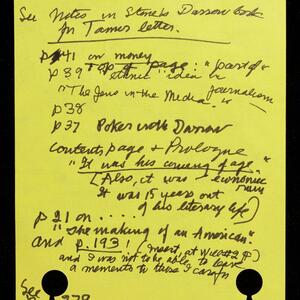 See Notes in Stone's Darrow book
for Tamer letter.
p 41 on money
p 39 top of page: "part of
ethnic" idea in
"The Jews in the Media." journalism
p 38
p 37 Poker with Darrow
Contents page + Prologue
"It was his coming of age"
(Also, it was economic
ruin
It was 15 years out
of his literary life)
p 21 on ....
"The making of an American"
and p. 193 (insert, at
and I was not to be able to
a memento to those I care for
See